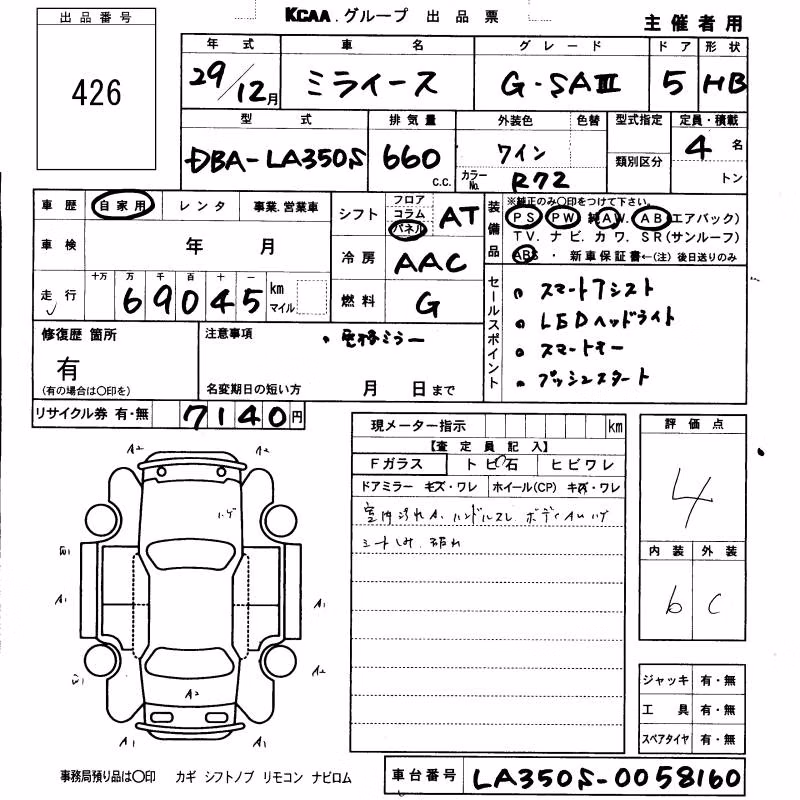 KCAA.グループ 出品票
主催者用
出品番号
426
年式 車名 グレード ドア 形状
29/12月 ミライース G・SAⅢ 5 HB
型式 排気量 外装色 色替 型式指定 定員・積載
DBA-LA350S 660 c.c. ワイン 類別区分 4名
カラーNo. R72 トン
車歴 自家用 レンタ 事業.営業車
車検 年 月
走行 十万 万 千 百 十 一
69045 km マイル
シフト フロア コラム パネル AT
冷房 AAC
燃料 G
装備品
※純正のみ○印をつけて下さい。
PS PW 純AW. AB(エアバック)
TV. ナビ. カワ. SR(サンルーフ)
ABS・新車保証書←(注) 後日送りのみ
セールスポイント
・スマートアシスト
・LEDヘッドライト
・スマートキー
・プッシュスタート
修復歴 箇所
有
(有の場合は○印を)
注意事項
・電格ミラー
名変期日の短い方 月 日まで
リサイクル券 有・無 7140円
現メーター指示 km
【査定員記入】
Fガラス トビ石 ヒビワレ
ドアミラー キズ・ワレ ホイール(CP) キズ・ワレ
室内汚れA. ハンドルスレ ボディAUハゲ
シートしみ.
評価点
4
内装 外装
6 C
ジャッキ 有・無
工具 有・無
スペアタイヤ 有・無
A2 A2
ハゲ
A1 A1
A2
A2
A1 A1
事務局預り品は○印 カギ シフトノブ リモコン ナビロム
車台番号 LA350S-0058160